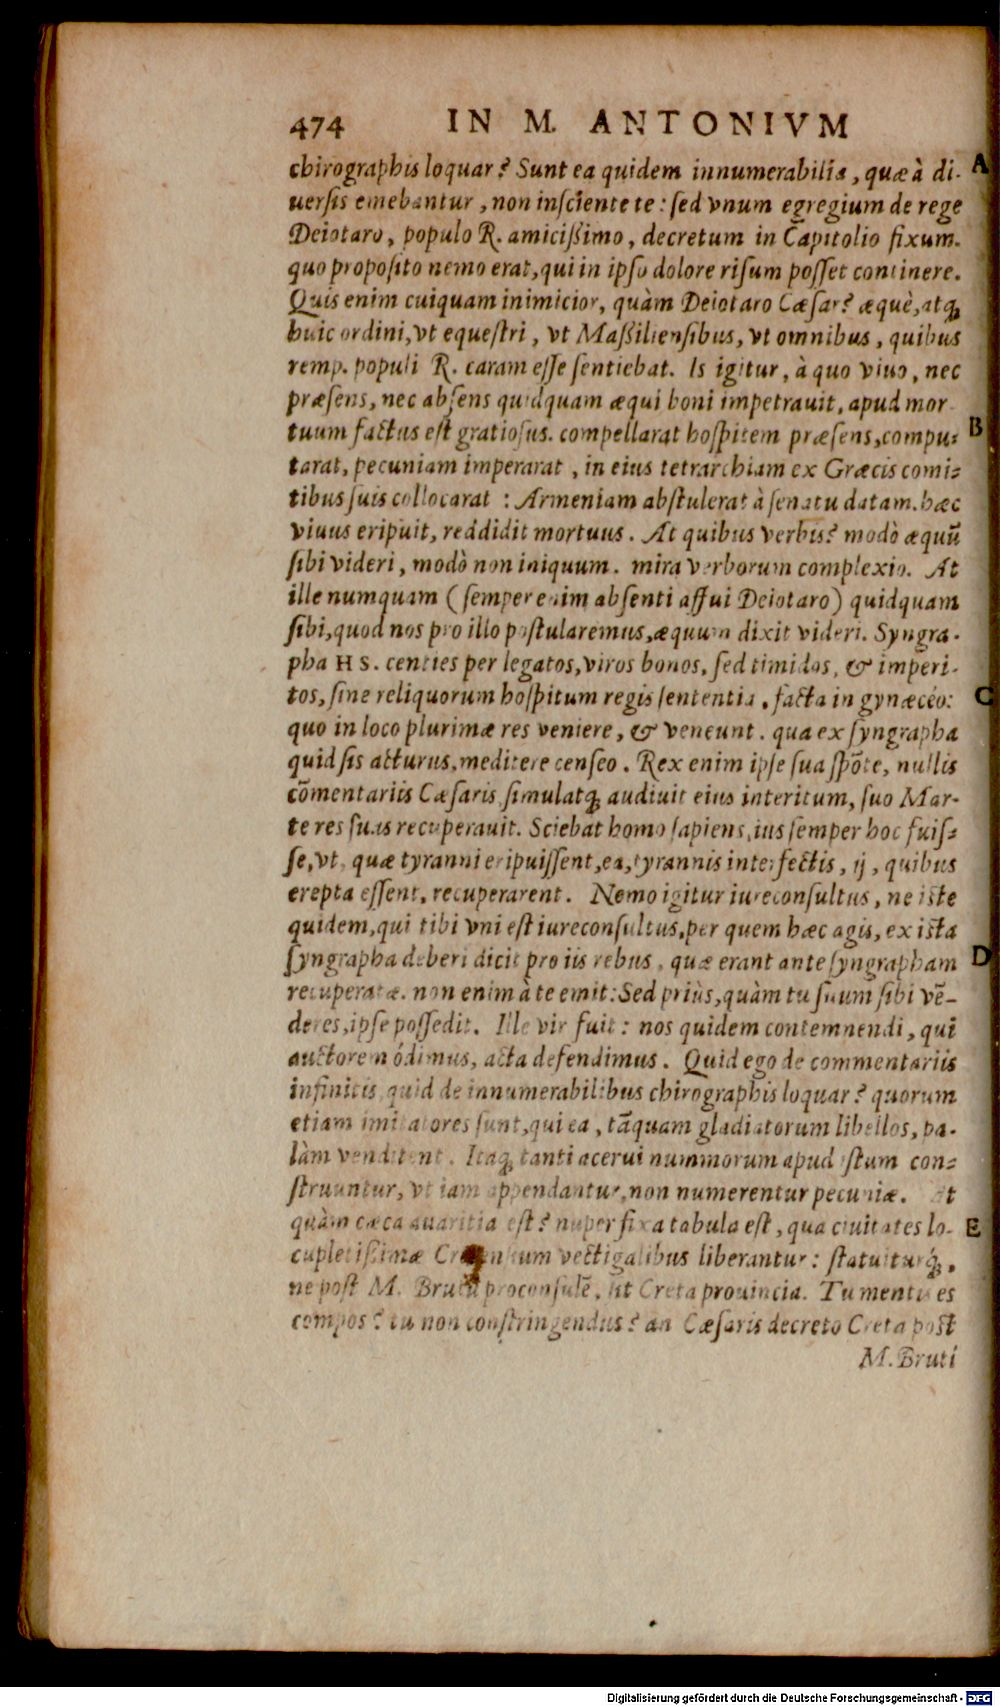 474 IN M. ANTONIVM
chirographis loquar? Sunt ea quidem innumerabilia, quæ à di- A
uersis emebantur, non insciente te: sed vnum egregium de rege
Deiotaro, populo R. amicißimo, decretum in Capitolio fixum.
quo proposito nemo erat, qui in ipso dolore risum posset continere.
Quis enim cuiquam inimicior, quàm Deiotaro Cæsar? æquè, atq;
huic ordini, vt equestri, vt Maßiliensibus, vt omnibus, quibus
remp. populi R. caram esse sentiebat. Is igitur, à quo viuo, nec
præsens, nec absens quidquam æqui boni impetrauit, apud mor
tuum factus est gratiosus. compellarat hospitem præsens, compu= B
tarat, pecuniam imperarat, in eius tetrarchiam ex Græcis comi=
tibus suis collocarat: Armeniam abstulerat à senatu datam. hæc
viuus eripuit, reddidit mortuus. At quibus verbis? modò æquũ
sibi videri, modò non iniquum. mira verborum complexio. At
ille numquam (semper enim absenti affui Deiotaro) quidquam
sibi, quod nos pro illo postularemus, æquum dixit videri. Syngra-
pha HS. centies per legatos, viros bonos, sed timidos, & imperi-
tos, sine reliquorum hospitum regis sententia, facta in gynæceo: C
quo in loco plurimæ res veniere, & veneunt. qua ex syngrapha
quid sis acturus, meditere censeo. Rex enim ipse sua spõte, nullis
cõmentariis Cæsaris, simulatq; audiuit eius interitum, suo Mar-
te res suas recuperauit. Sciebat homo sapiens, ius semper hoc fuis=
se, vt, quæ tyranni eripuissent, ea, tyrannis interfectis, ij, quibus
erepta essent, recuperarent. Nemo igitur iureconsultus, ne iste
quidem, qui tibi vni est iureconsultus, per quem hæc agis, ex ista
syngrapha deberi dicit pro iis rebus, quæ erant ante syngrapham D
recuperatæ. non enim à te emit: Sed priùs, quàm tu suum sibi vẽ-
deres, ipse possedit. Ille vir fuit: nos quidem contemnendi, qui
auctorem ódimus, acta defendimus. Quid ego de commentariis
infinitis, quid de innumerabilibus chirographis loquar? quorum
etiam imitatores sunt, qui ea, tãquam gladiatorum libellos, pa-
làm venditent. Itaq; tanti acerui nummorum apud istum con=
struuntur, vt iam appendantur, non numerentur pecuniæ. At
quàm cæca auaritia est? nuper fixa tabula est, qua ciuitates lo- E
cupletißimæ Cretensium vectigalibus liberantur: statuiturq́;,
ne post M. Brutũ proconsulẽ, sit Creta prouincia. Tu mentis es
compos? tu non constringendus? an Cæsaris decreto Creta post
M. Bruti
Digitalisierung gefördert durch die Deutsche Forschungsgemeinschaft - DFG